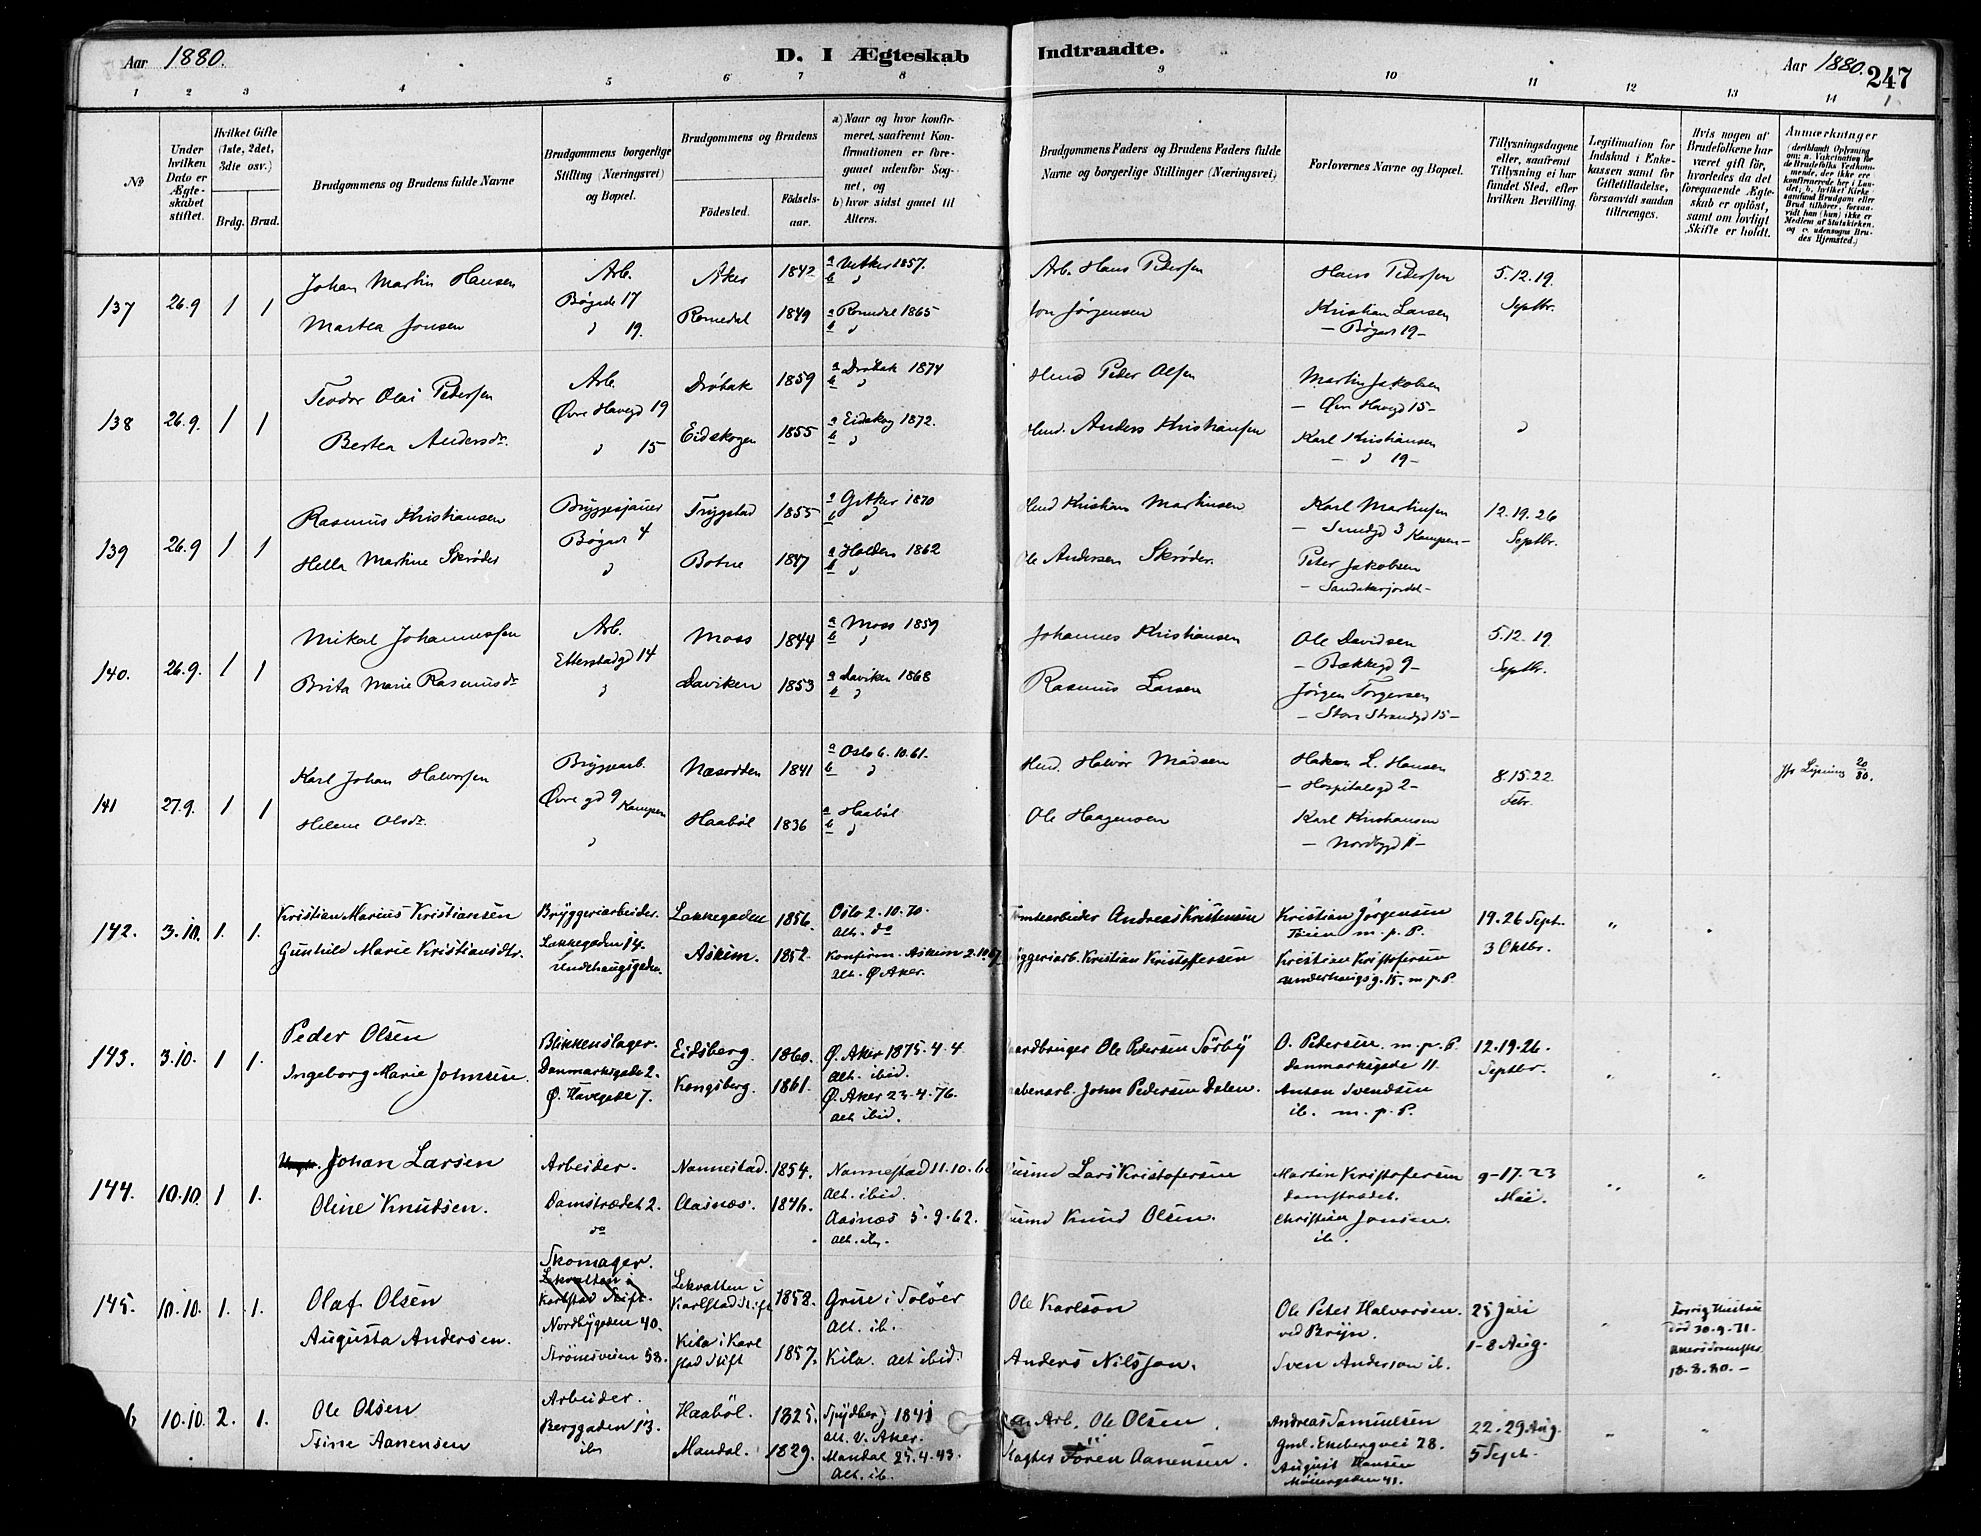 Aar 1880.
D. I Ægteskab Indtraadte.
Aar 1880. 247
1 2 3 4 5 6 7 8 9 10 11 12 13 14
No
Under hvilken Dato er Ægteskabet stiftet.
Hvilket Gifte (1ste, 2det, 3die osv.)
Brdg. Brud.
Brudgommens og Brudens fulde Navne
Brudgommens borgerlige Stilling (Næringsvei) og Bopæl.
Brudgommens og Brudens
Födested.
Födselsaar.
a) Naar og hvor konfirmeret, saafremt Konfirmationen er foregaaet udenfor Sognet, og
b) hvor sidst gaaet til Alters.
Brudgommens Faders og Brudens Faders fulde Navne og borgerlige Stillinger (Næringsvei)
Forlovernes Navne og Bopæl.
Tillysningsdagene eller, saafremt Tillysning ei har fundet Sted, efter hvilken Bevilling.
Legitimation for Indskud i Enkekassen samt for Giftetilladelse, forsaavidt saadan tiltrænges.
Hvis nogen af Brudefolkene har været gift før, hvorledes da det foregaaende Ægteskab er opløst, samt om lovligt Skifte er holdt.
Anmærkninger
137 26.9 1 1
Johan Martin Hansen
Martea Jonsen
Arb.
Bøgade 17
" 19.
Aker 1842
Romedal 1849
a V. Aker 1857.
b "
a Romedal 1865
b "
Arb. Hans Pedersen
Jørgensen
Hans Pedersen
Kristian Larsen
– Bøgad 19 –
5.12.19
Septbr.
138 26.9. 1 1
Teodor Olai Pedersen
Bertea Andersdr.
Arb.
Øvre Havegd 19
" 15
Drøbak 1859
Eidskogen 1855
a Drøbak 1874
b "
a Eidskog 1872.
b "
Peder Olsen
Anders Kristiansen
Martin Jakobsen
– Øvr Havegd 15 –
Karl Kristiansen
– " 19 –
"
139 26.9 1 1
Rasmus Kristiansen
Hella Martine Skrøder
Bryggesjauer
Bøgad 4
"
Trygstad 1855
Botne 1847
a G. Aker 1870
b "
a Holden 1862
b "
Kristian Martinsen
Ole Andersen Skrøder.
Karl Martinsen
3 Kampen –
Peter Jakobsen
– Sandakerjordet –
12.19.26
Septbr.
140. 26.9. 1 1
Mikal Johannessen
Brita Marie Rasmusdr
Arb.
Etterstadgd 14
"
Moss 1844
Daviken 1853
a Moss 1859
b "
a Daviken 1868
b "
Johannes Kristiansen
Rasmus Larsen
Ole Davidsen
– Bækkegd 9 –
Jörgen Torgersen
– Store Strandgd 15 –
5.12.19.
Septbr.
141 27.9. 1 1
Karl Johan Halvorsen
Helene Olsdr.
Bryggearb.
Øvre gd 9 Kampen
"
Næsodden 1841
Haabøl 1836
a Oslo 6.10.61.
b "
a Haabøl
b "
Halvor Madsen
Ole Haagensen
Hakon L. Hansen
– Hospitalsgd 2 –
Karl Kristiansen
– Nordbygd 11 –
8.15.22.
Febr.
Lysning 20/80.
142. 3.10. 1. 1.
Kristian Marius Kristiansen
Gunhild Marie Kristiansdtr.
Bryggeriarbeider.
Lakkegaden 14.
Lakkegaden 1856.
Askim. 1852.
Oslo 2.10.70.
alt. do
Konfirm. Askim
alt. Ø. Aker.
Andreas Kristensen
Kristian Kristoffersen
Kristian Jörgensen
Töien m.p.P.
Kristian Kristofersen
15. m.p.P.
19.26 Sept.
3 Oktbr.
"
143. 3.10. 1 1.
Peder Olsen
Ingeborg Marie Johnsen.
Blikkenslager.
Danmarksgade 2.
Ø. Havegade 7.
Eidsberg. 1860.
Kongsberg. 1861.
Ø. Aker 1875.4.4
alt. ibid.
Ø. Aker 23.4.76.
alt. ibid.
Ole Pedersen Sörby
John Pedersen Dalen.
O. Pedersen. m.p.P.
Danmarksgade 11.
Anton Svendsen
ib. m.p.P.
12.19.26.
Septbr.
"
144. 10.10. 1 1.
Johan Larsen
Oline Knudsen.
Arbeider.
Damstrædet 2.
do
Nannestad. 1854.
Aasnæs. 1846.
Nannestad 11.10.6
alt. ibid.
Aasnæs 5.9.62.
alt. ib.
Lars Kristofersen
Knud Olsen.
Martin Kristofersen
Damstrædet.
Christian Jonsen.
ib.
9–17.23
Mai.
"
145. 10.10. 1. 1.
Olaf Olsen
Augusta Andersen.
Skomager.
Lekvatten i
Karlstad Stift.
Nordbygaden 40.
Strömsveien 53.
Lekvatten i
Karlstad Stift 1858.
Kila i Karl
stad Stift 1857.
Grue i Solöer
Alt. ib.
Kila. alt ibid.
Ole Karlson
Anders Nilsson.
Ole Peter Halvorsen.
ved Bryn.
Sven Anderson ib.
25 Juli
1–8 Aug.
"
död 30.9.71
18.8.80. –
6 10.10. 2. 1.
Ole Olsen
Stine Aanensen
Arbeider.
Berggaden 13.
ib.
Haabøl. 1825.
Mandal. 1829.
Spydberg 1841
alt. V. Aker.
Mandal 25.4.43.
Alt. ib.
Arb. Ole Olsen
Sören Aanensen.
Andreas Samuelsen
Gml. Ekebergvei 28.
August Hansen
Möllergaden 41.
22.29 Aug.
5 Sept.
"